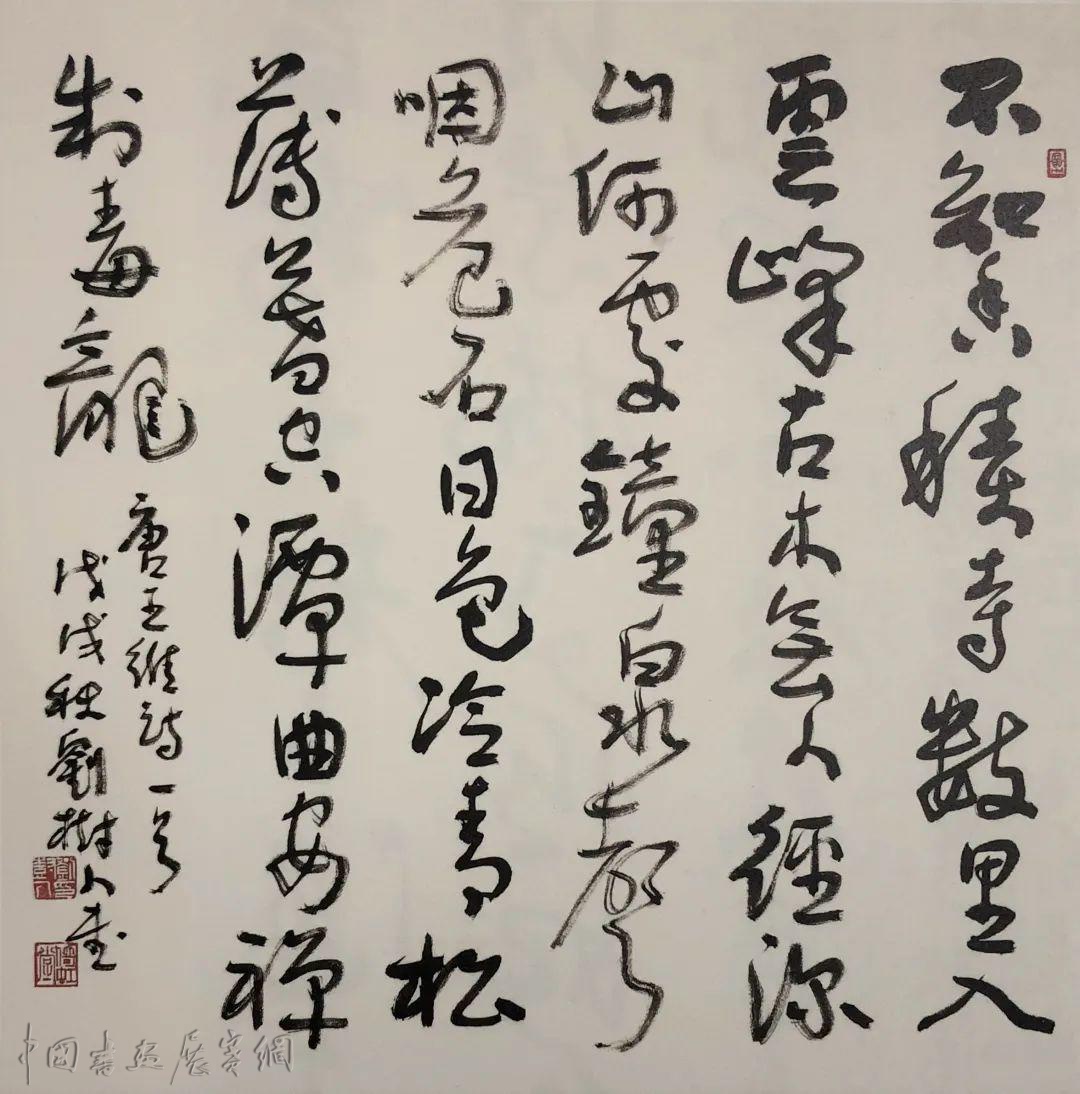 不知香積寺數里入
雲峰古木無人徑深
山何處鐘泉聲
咽危石日色冷青松
薄暮空潭曲安禪
制毒龍
唐王維詩一首
戊戌秋劉樹人書
中國書畫展賽網